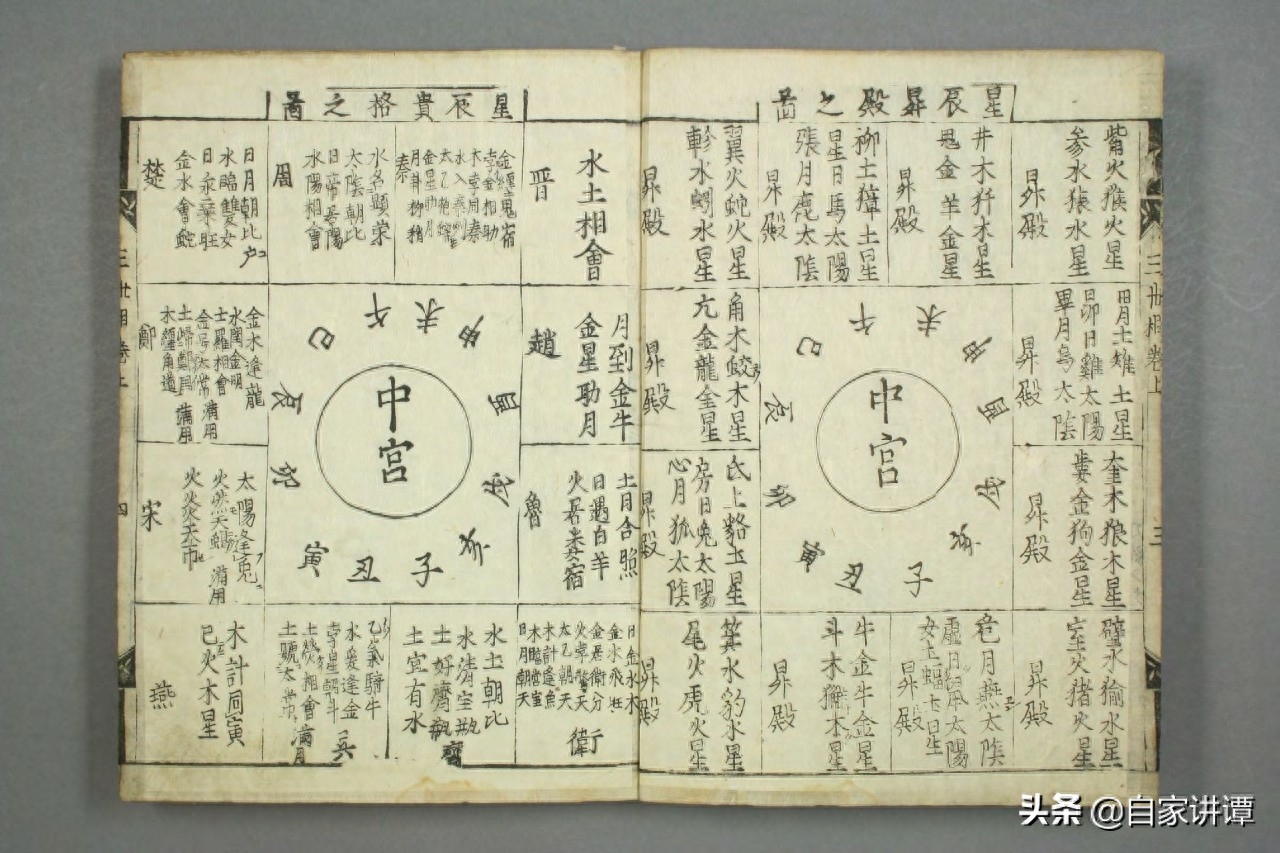 星辰昇殿之啚
觜火猴火星
参水猿水星
昇殿
井木犴木星
鬼金羊金星
昇殿
柳土獐土星
星日馬太陽
張月鹿太陰
昇殿
翼火蛇火星
軫水蚓水星
昇殿
胃月土雉土星
昴日雞太陽
畢月烏太陰
昇殿
奎木狼木星
婁金狗金星
昇殿
壁水㺄水星
室火猪火星
昇殿
危月燕太陰
虚日鼠太陽
女土蝠土星
昇殿
牛金牛金星
斗木獬木星
昇殿
箕水豹水星
尾火虎火星
昇殿
氐土貉土星
房日兎太陽
心月狐太陰
昇殿
角木蛟木星
亢金龍金星
昇殿
中宮
巳
午
未
申
酉
戌
亥
子
丑
寅
卯
辰
三世相卷上
三
星辰貴格之啚
水土相會
晋
金纏鬼宿
孛金相助
金星助月
秦
水名顕榮
太陰朝比
日帝居陽
水陽相會
周
日月朝比
水臨雙女
金水會蛇
楚
月到金牛
金星助月
趙
土月合照
日遇白羊
火居婁宿
魯
日金水木
金居衛分
太乙朝天
木臨營室
日月朝天
衛
水土朝比
水清宝瓶
土好齊瓶
土宮有水
齊
水愛逢金
吳
木計同寅
巳火木星
燕
太陽逢兎
宋
金水逢龍
土羅相會
木纏角道
鄭
中宮
巳
午
未
申
酉
戌
亥
子
丑
寅
卯
辰
三世相卷上
四
头条 @自家讲谭